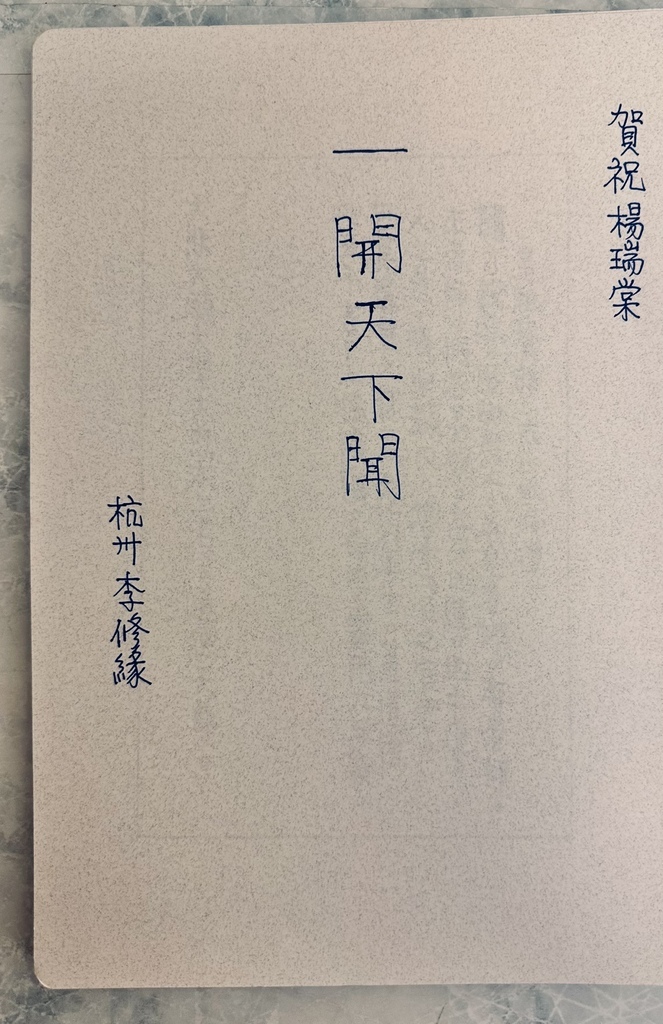 賀祝楊瑞棠
一開天下聞
杭州李修緣